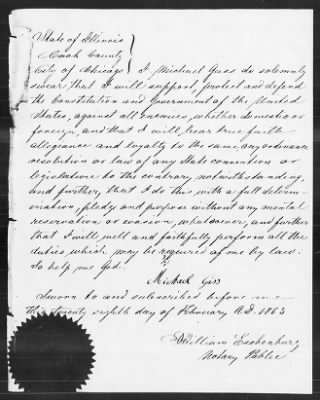 State of Illinois
Cook County
City of Chicago } I Michael Giss do solemnly
swear that I will support, protect and defend
the Constitution and Government of the United
States, against all enemies, whether domestic or
foreign, and that I will bear true faith
allegiance and loyalty to the same any ordinance
resolution or law of any State convention or
legislature to the contrary notwithstanding.
And further, that I do this with a full determ-
ination, pledge and purpose without any mental
reservation or evasion, whatsoever, and further
that I will well and faithfully perform all the
duties, which may be required of me by law.
So help me God.
Michael Giss
Sworn to and subscribed before me
the twenty eighth day of February A.D. 1863
William Eschenburg
Notary Public